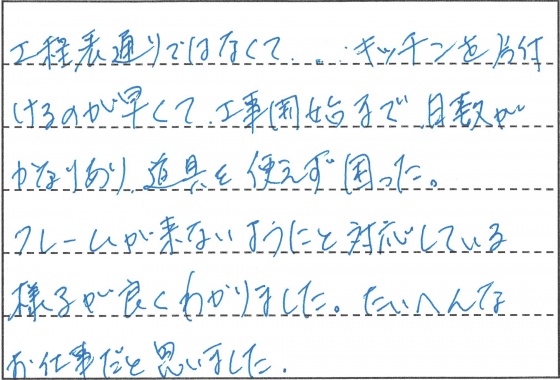 工程表通りではなくて... キッチンを片付
けるのが早くて、工事開始まで日数が
かなりあり、道具を使えず困った。
クレームが来ないようにと対応している
様子が良くわかりました。たいへんな
お仕事だと思いました.